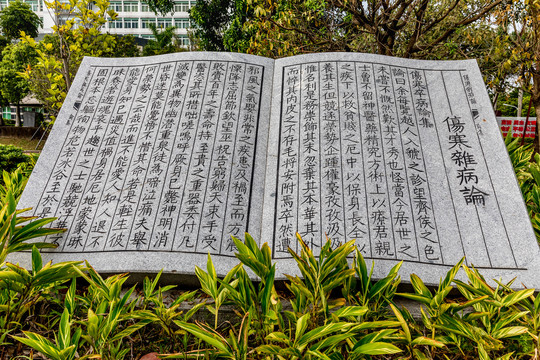 傷寒雜病論
傷寒卒病論集
論曰余每覽越人入虢之診望齊侯之色
未嘗不慨然歎其才秀也怪當今居世之
士曾不留神醫藥精究方術上以療君親
之疾下以救貧賤之厄中以保身長全以
養其生但競逐榮勢企踵權豪孜孜汲汲
惟名利是務崇飾其末忽棄其本華其外
而悴其內皮之不存毛將安附焉卒然遭
邪風之氣嬰非常之疾患及禍至而方
震慄降志屈節欽望巫祝告窮歸天束手受
敗賫百年之壽命持至貴之重器委付凡
醫恣其所措咄嗟嗚呼厥身已斃神明消
滅變為異物幽潛重泉徒為啼泣痛夫舉
世昏迷莫能覺悟不惜其命若是輕生彼
何榮勢之云哉而進不能愛人知人退不
能愛身知己遇災值禍身居厄地蒙蒙昧
昧惷若遊魂哀乎趨世之士馳競浮華
固根本忘軀徇物危若冰谷至於